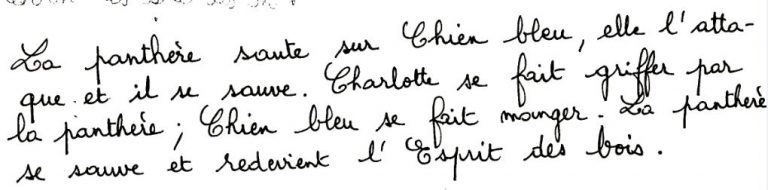 La panthère saute sur Chien bleu, elle l'atta-
que et il se sauve. Charlotte se fait griffer par
la panthère ; Chien bleu se fait manger. La panthère
se sauve et redevient l'Esprit des bois.